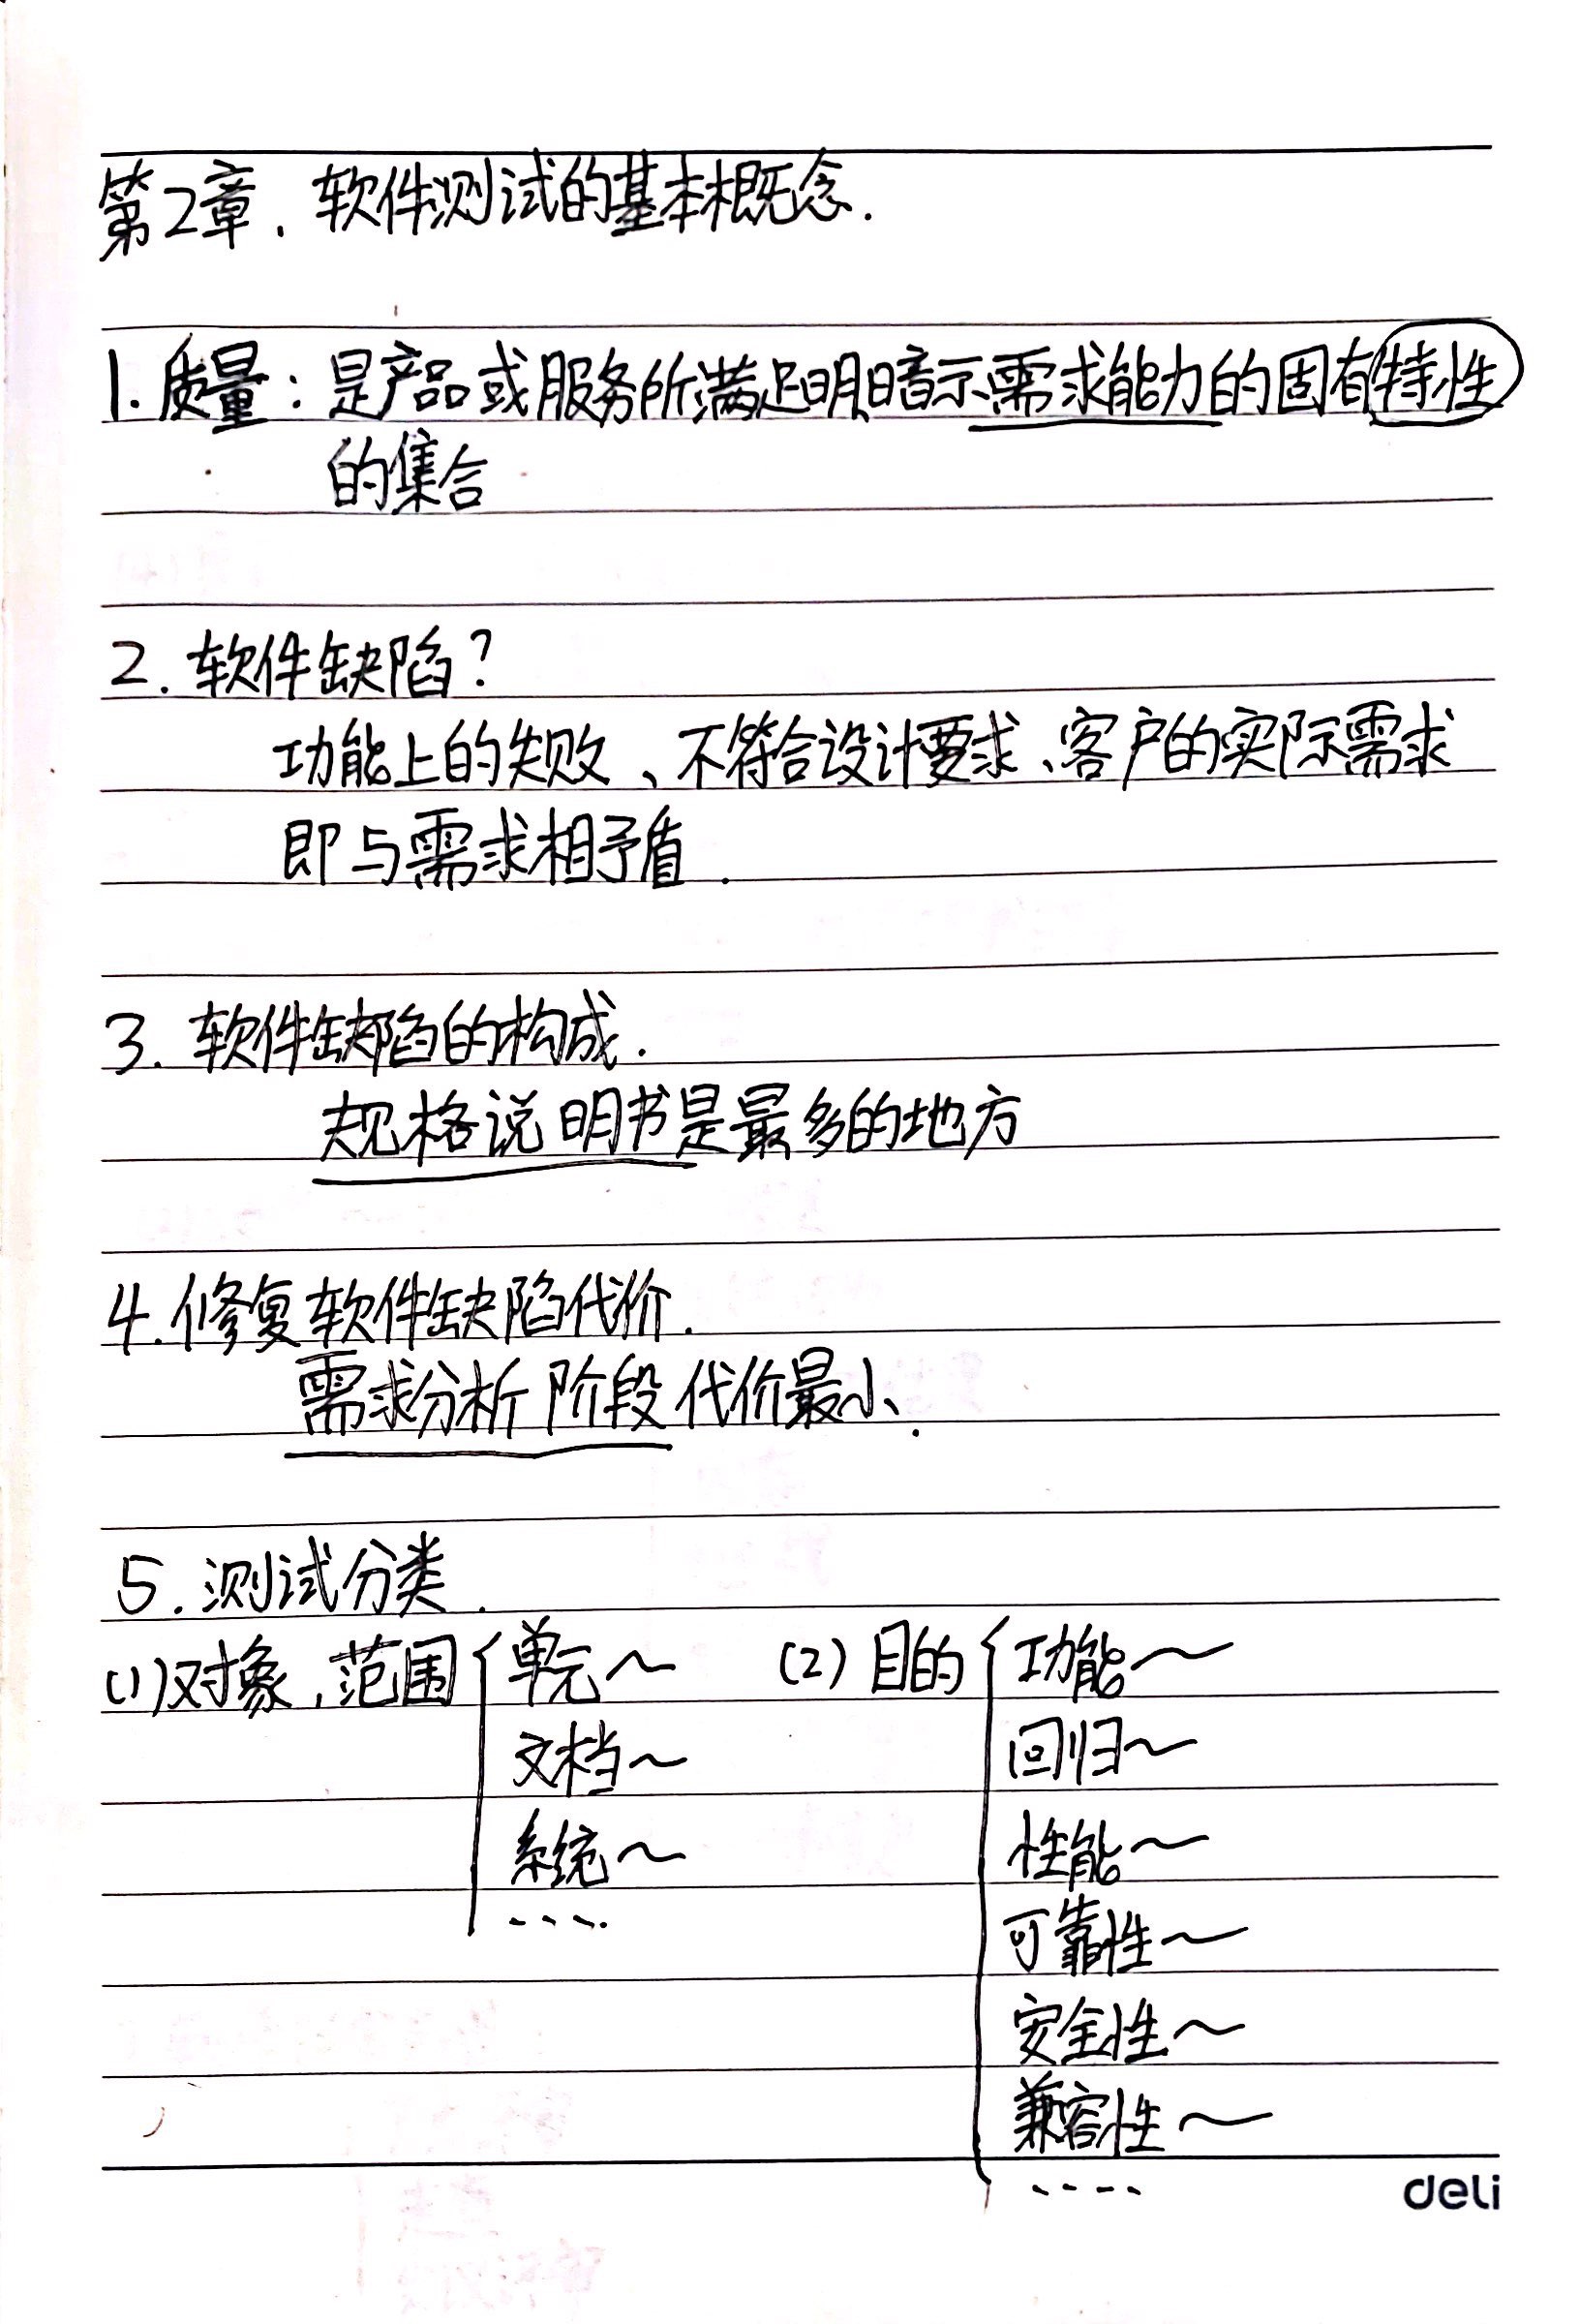 第2章. 软件测试的基本概念.
1. 质量：是产品或服务所满足明暗示需求能力的固有特性
的集合
2. 软件缺陷？
功能上的失败、不符合设计要求、客户的实际需求
即与需求相矛盾.
3. 软件缺陷的构成.
规格说明书是最多的地方
4. 修复软件缺陷代价.
需求分析阶段代价最小.
5. 测试分类.
(1)对象,范围 { 单元～ (2)目的 { 功能～
文档～ 回归～
系统～ 性能～
.... 可靠性～
安全性～
兼容性～
....
deli